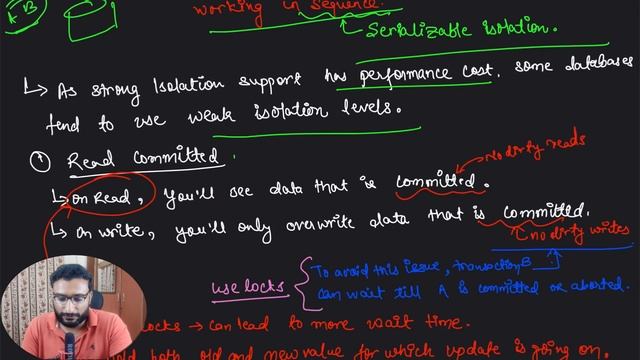 A B
working in sequence.
Serializable isolation.
↳ As strong Isolation support has performance cost, some databases
tend to use weak isolation levels.
① Read Committed
No dirty reads
↳ on Read, you'll see data that is committed.
↳ on write, you'll only overwrite data that is committed.
no dirty writes
use locks
To avoid this issue, transaction B
can wait till A is committed or aborted.
locks → can lead to more wait time.
hold both old and new value for which update is going on.